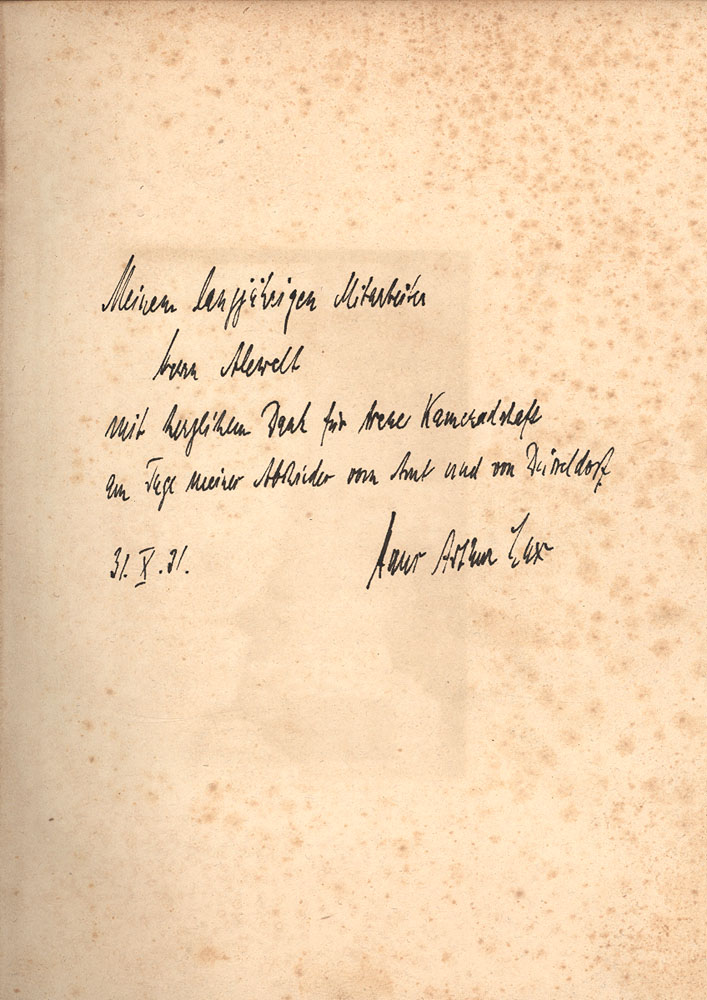 Meinem langjährigen Mitarbeiter
Herrn Alewelt
mit herzlichem Dank für treue Kameradschaft
am Tage meines Abschiedes vom Amt und von Düsseldorf
31. X. 31.
Hans Arthur Lux